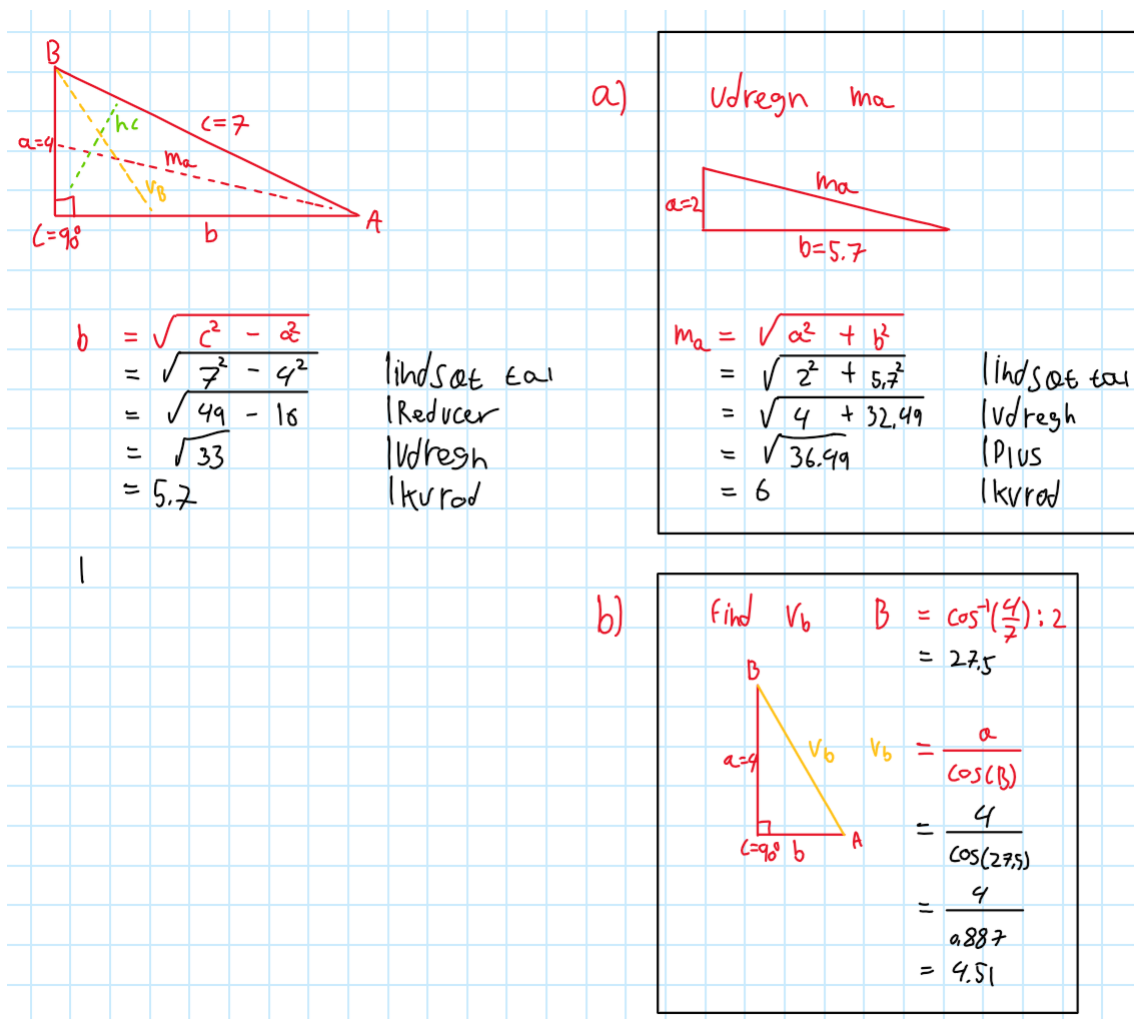 B
hc
c=7
a=4
ma
vB
A
C=90°
b
b = √c² - a²
= √7² - 4² |indsæt tal
= √49 - 16 |Reducer
= √33 |Udregn
= 5.7 |kvrod
a) Udregn ma
ma
a=2
b=5.7
ma = √a² + b²
= √2² + 5,7² |indsæt tal
= √4 + 32,49 |Udregn
= √36.49 |Plus
= 6 |kvrod
b) Find Vb B = cos⁻¹(4/7):2
= 27,5
B
a=4
Vb
C=90° b
A
Vb = a/cos(B)
= 4/cos(27,5)
= 4/0,887
= 4.51